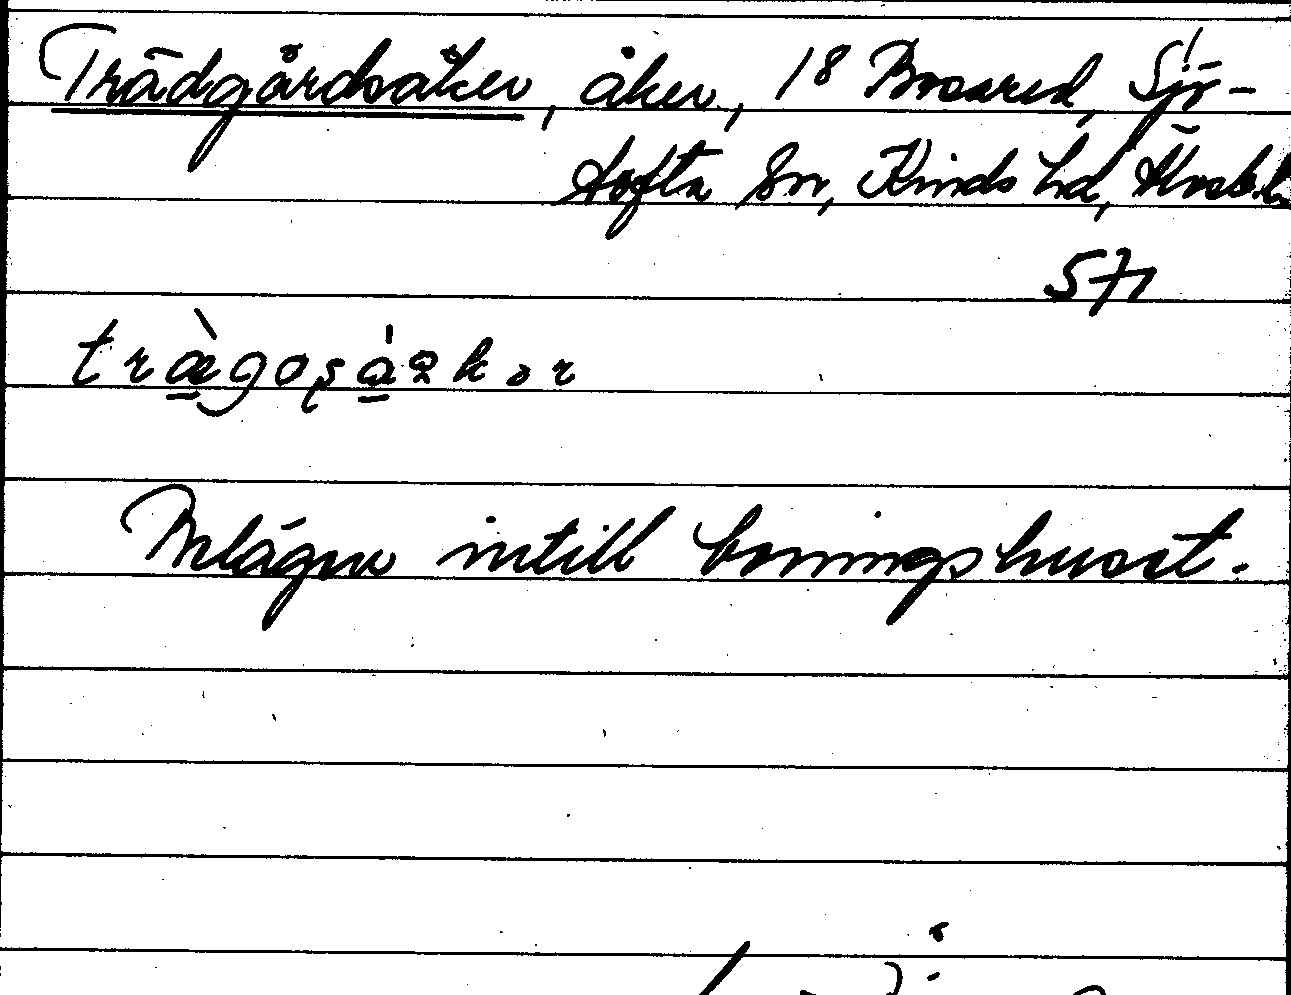 Trädgårdsåker, åker, 18 Bosared, Sjö-
tofta sn, Kinds hd, Älvsb.l.
571
Belägen intill boningshuset.